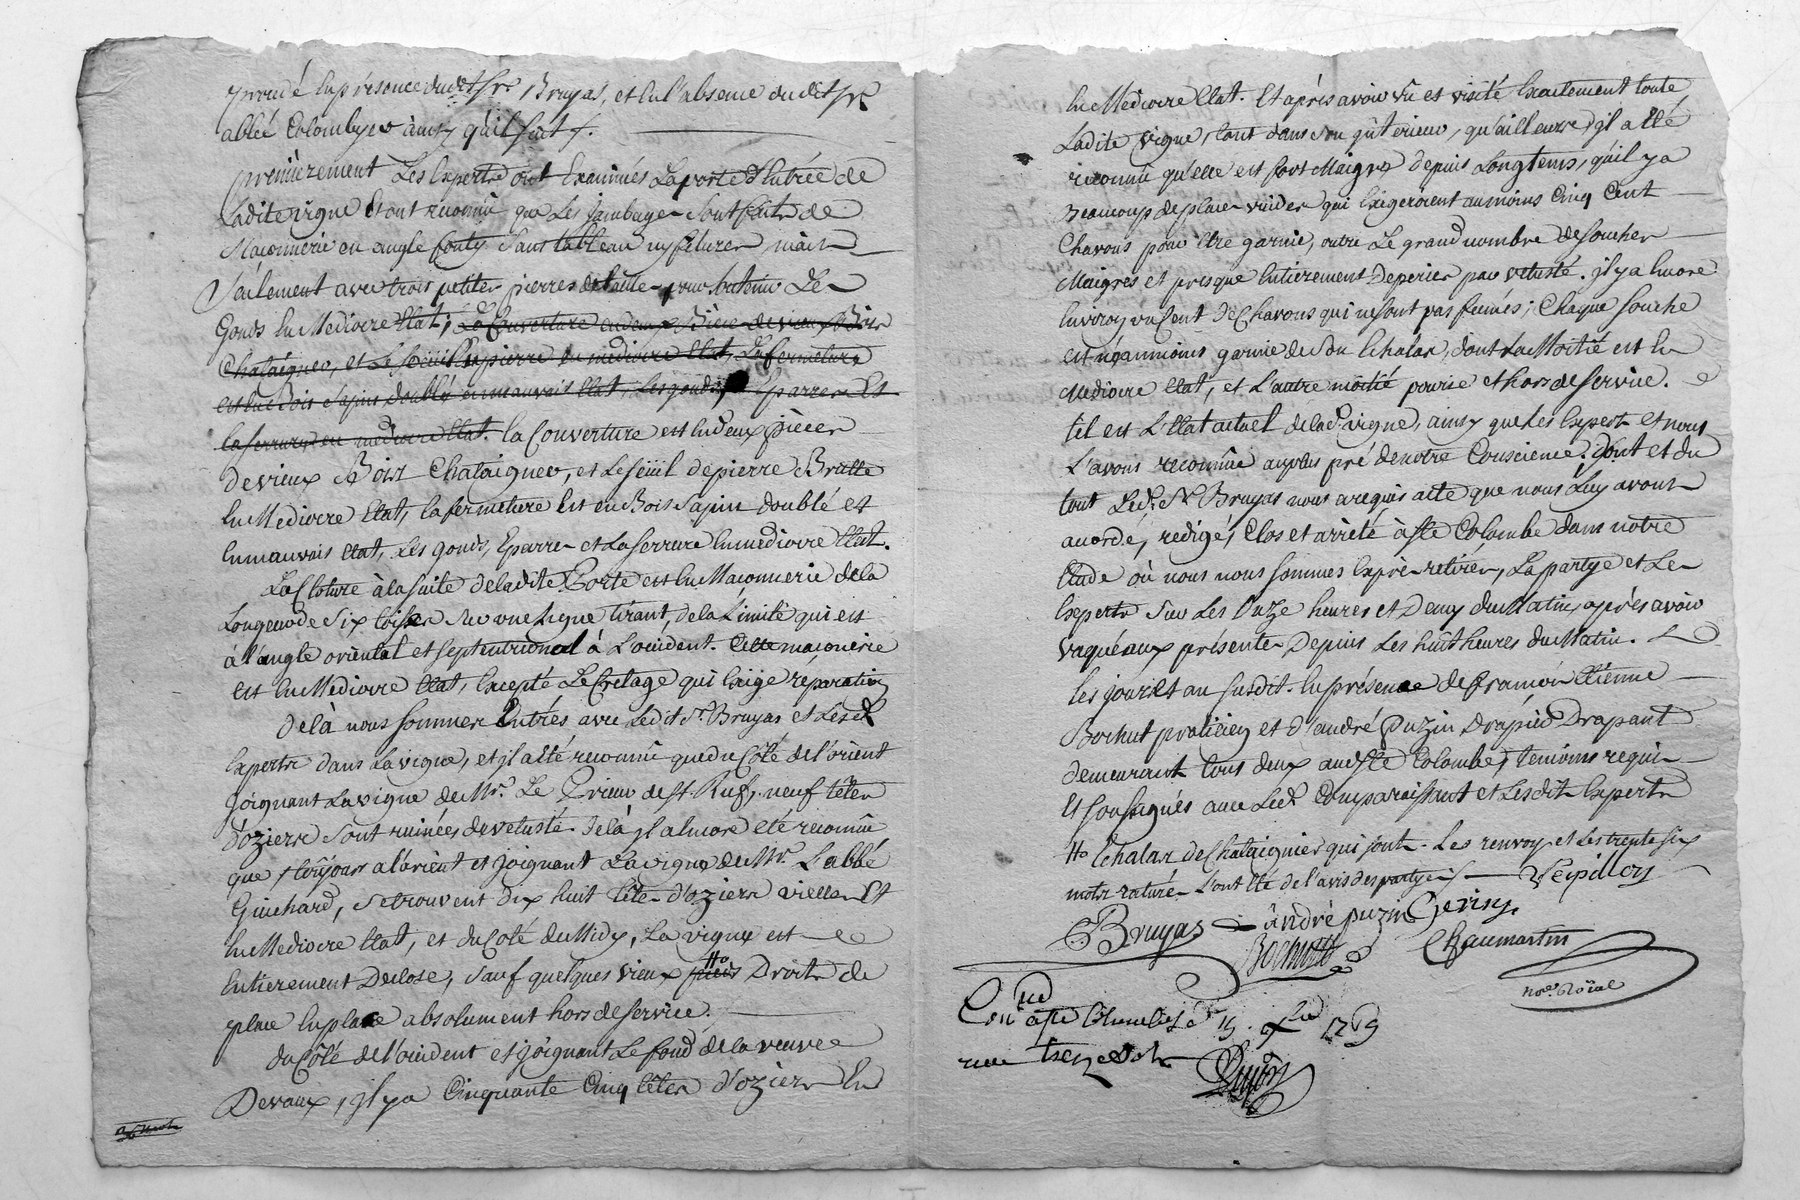 procédé en présence dudit Sr. Bruyas, et en l'absence dudit Sr.
abbé Colombyer ainsy qu'il suit /.
premièrement Les Experts ont Examinés La porte d'Entrée de
Ladite vigne Et ont reconnû que Les jambages sont faits de
Maçonnerie en angle sans tableau ny felures, mais
Seulement avec trois petites pierres de taille pour soutenir Les
Gonds En Mediocre Etat; La Couverture en deux pièces de vieux Bois
Chataignier, et Le Seüiil en pierre en mediocre Etat, La fermeture
est en Bois Sapin doublé en mauvais Etat, Les gonds, Eparres Et
la serrure en mediocre Etat. la Couverture est En deux pièces
De vieux Bois Chataignier, et Le seüiil de pierre Brutte
En Mediocre Etat, la fermeture Est en Bois Sapin doublé et
En mauvais Etat, Les gonds, Eparres et La serrure En mediocre Etat.
La Cloture à la suite de ladite Porte est En Maçonnerie de la
Longueur de Six toises sur une Ligne tirant, de la Limite qui est
à l'angle oriental et septentrional à L'occident. Cette maçonerie
est En Mediocre Etat, Excepté Le Cretage qui Exige réparation
De là nous sommes Entrés avec Ledit Sr. Bruyas et Lesd.
Experts dans La vigne, et il a été reconnû que du Côté de l'orient
joignant La vigne de Mr. Le Prieur de St. Ruf, neuf têtes
d'oziers sont ruinées de vetusté. De là il a Encore été reconnû
que toûjours a l'orient et joignant La vigne de Mr. L'abbé
Guichard, se trouvent Dix huit têtes d'oziers vielles Et
En Mediocre Etat, et du Coté du Midy, La vigne est
Entierement Declose, sauf quelques vieux pieds Ho Droits de
place En place absolument hors de service.
du Côté de l'occident et joignant Le fond de la veuve
Devaux, il y a Cinquante Cinq têtes d'oziers En
36 mots
En Mediocre Etat. Et après avoir vû et visité Exactement toute
Ladite vigne, tant dans son jnterieur, qu'ailleurs, il a été
reconnû qu'elle est fort Maigre depuis Longtems, qu'il y a
Beaucoup de places vuides qui Exigeroient au moins Cinq Cent
Chavons pour être garnie, outre Le grand nombre de souches
Maigres et presque Entierement Deperies par vetusté. il y a Encore
Environ un Cent de Chavons qui ne sont pas fumés; Chaque souche
est néanmoins garnie de son Echalas, dont La Moitié est En
Mediocre Etat, et L'autre moitié pourie et hors de service.
tel est L'Etat actuel de lad. vigne, ainsy que Les Experts et nous
L'avons reconnûe au plus pré de notre Conscience. Dont et du
tout Led. Sr. Bruyas nous a requis acte que nous Luy avons
accordé, redigé, Clos et arrêté à Ste Colombe dans notre
Etude où nous nous sommes Exprès retirés, La partye et Les
Experts sur Les Onze heures et Demy du Matin, après avoir
vaqué aux présentes Depuis Les huit heures du Matin.
Les jour et an susdit. En présence de Etienne
Bochut praticien et d'andré Puzin Drapier Drapant
demeurant tous deux aud. Ste Colombe, temoins requis
Et soussignés avec Led. Comparaissant et Lesdits Experts
Ho Echalas de Chataignier qui sont. Les renvoy et Les trente six
mots raturé sont été de l'avis des partyes /.
Bruyas andré puzin Gerin
Bochutt Chaumartin
Nore. Roïal
Conlé. a Ste Colombe Le 15. 1769
reçu treze sols